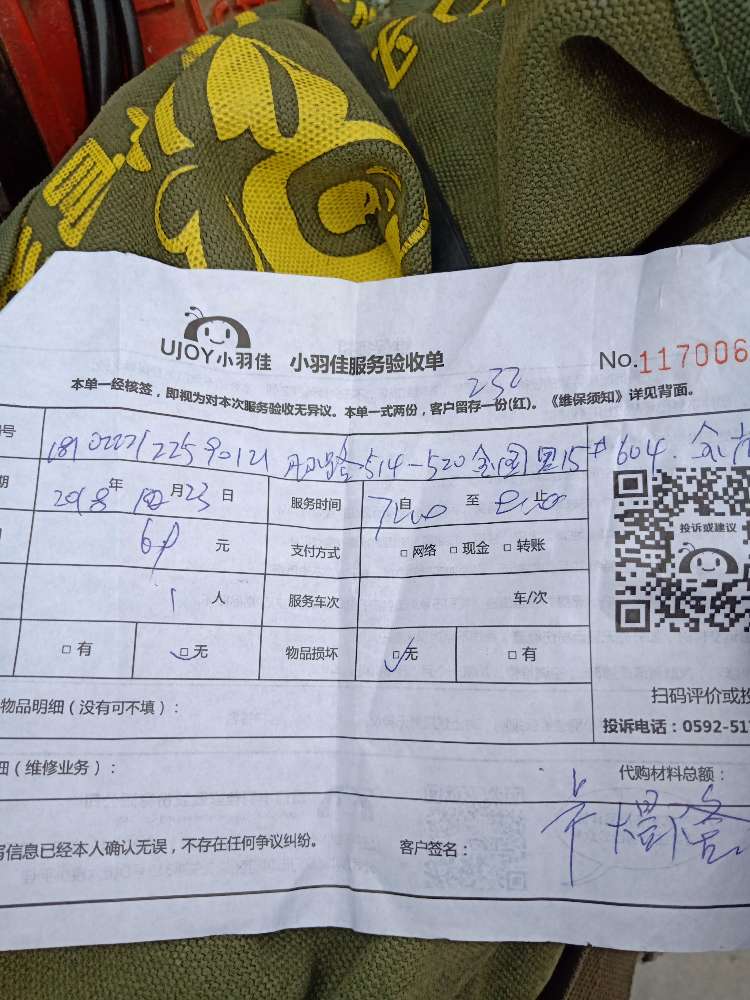 UJOY小羽佳 小羽佳服务验收单 No.117006
232
本单一经核签，即视为对本次服务验收无异议。本单一式两份，客户留存一份(红)。《维保须知》详见背面。
号 514-520 15# 604
期 2018年 月23日 服务时间 自 至 止
60 元 支付方式 □网络 □现金 □转账
1人 服务车次 车/次
□有 □无 物品损坏 □无 □有
投诉或建议
扫码评价或投
投诉电话：0592-51
物品明细（没有可不填）：
细（维修业务）： 代购材料总额：
写信息已经本人确认无误，不存在任何争议纠纷。 客户签名：